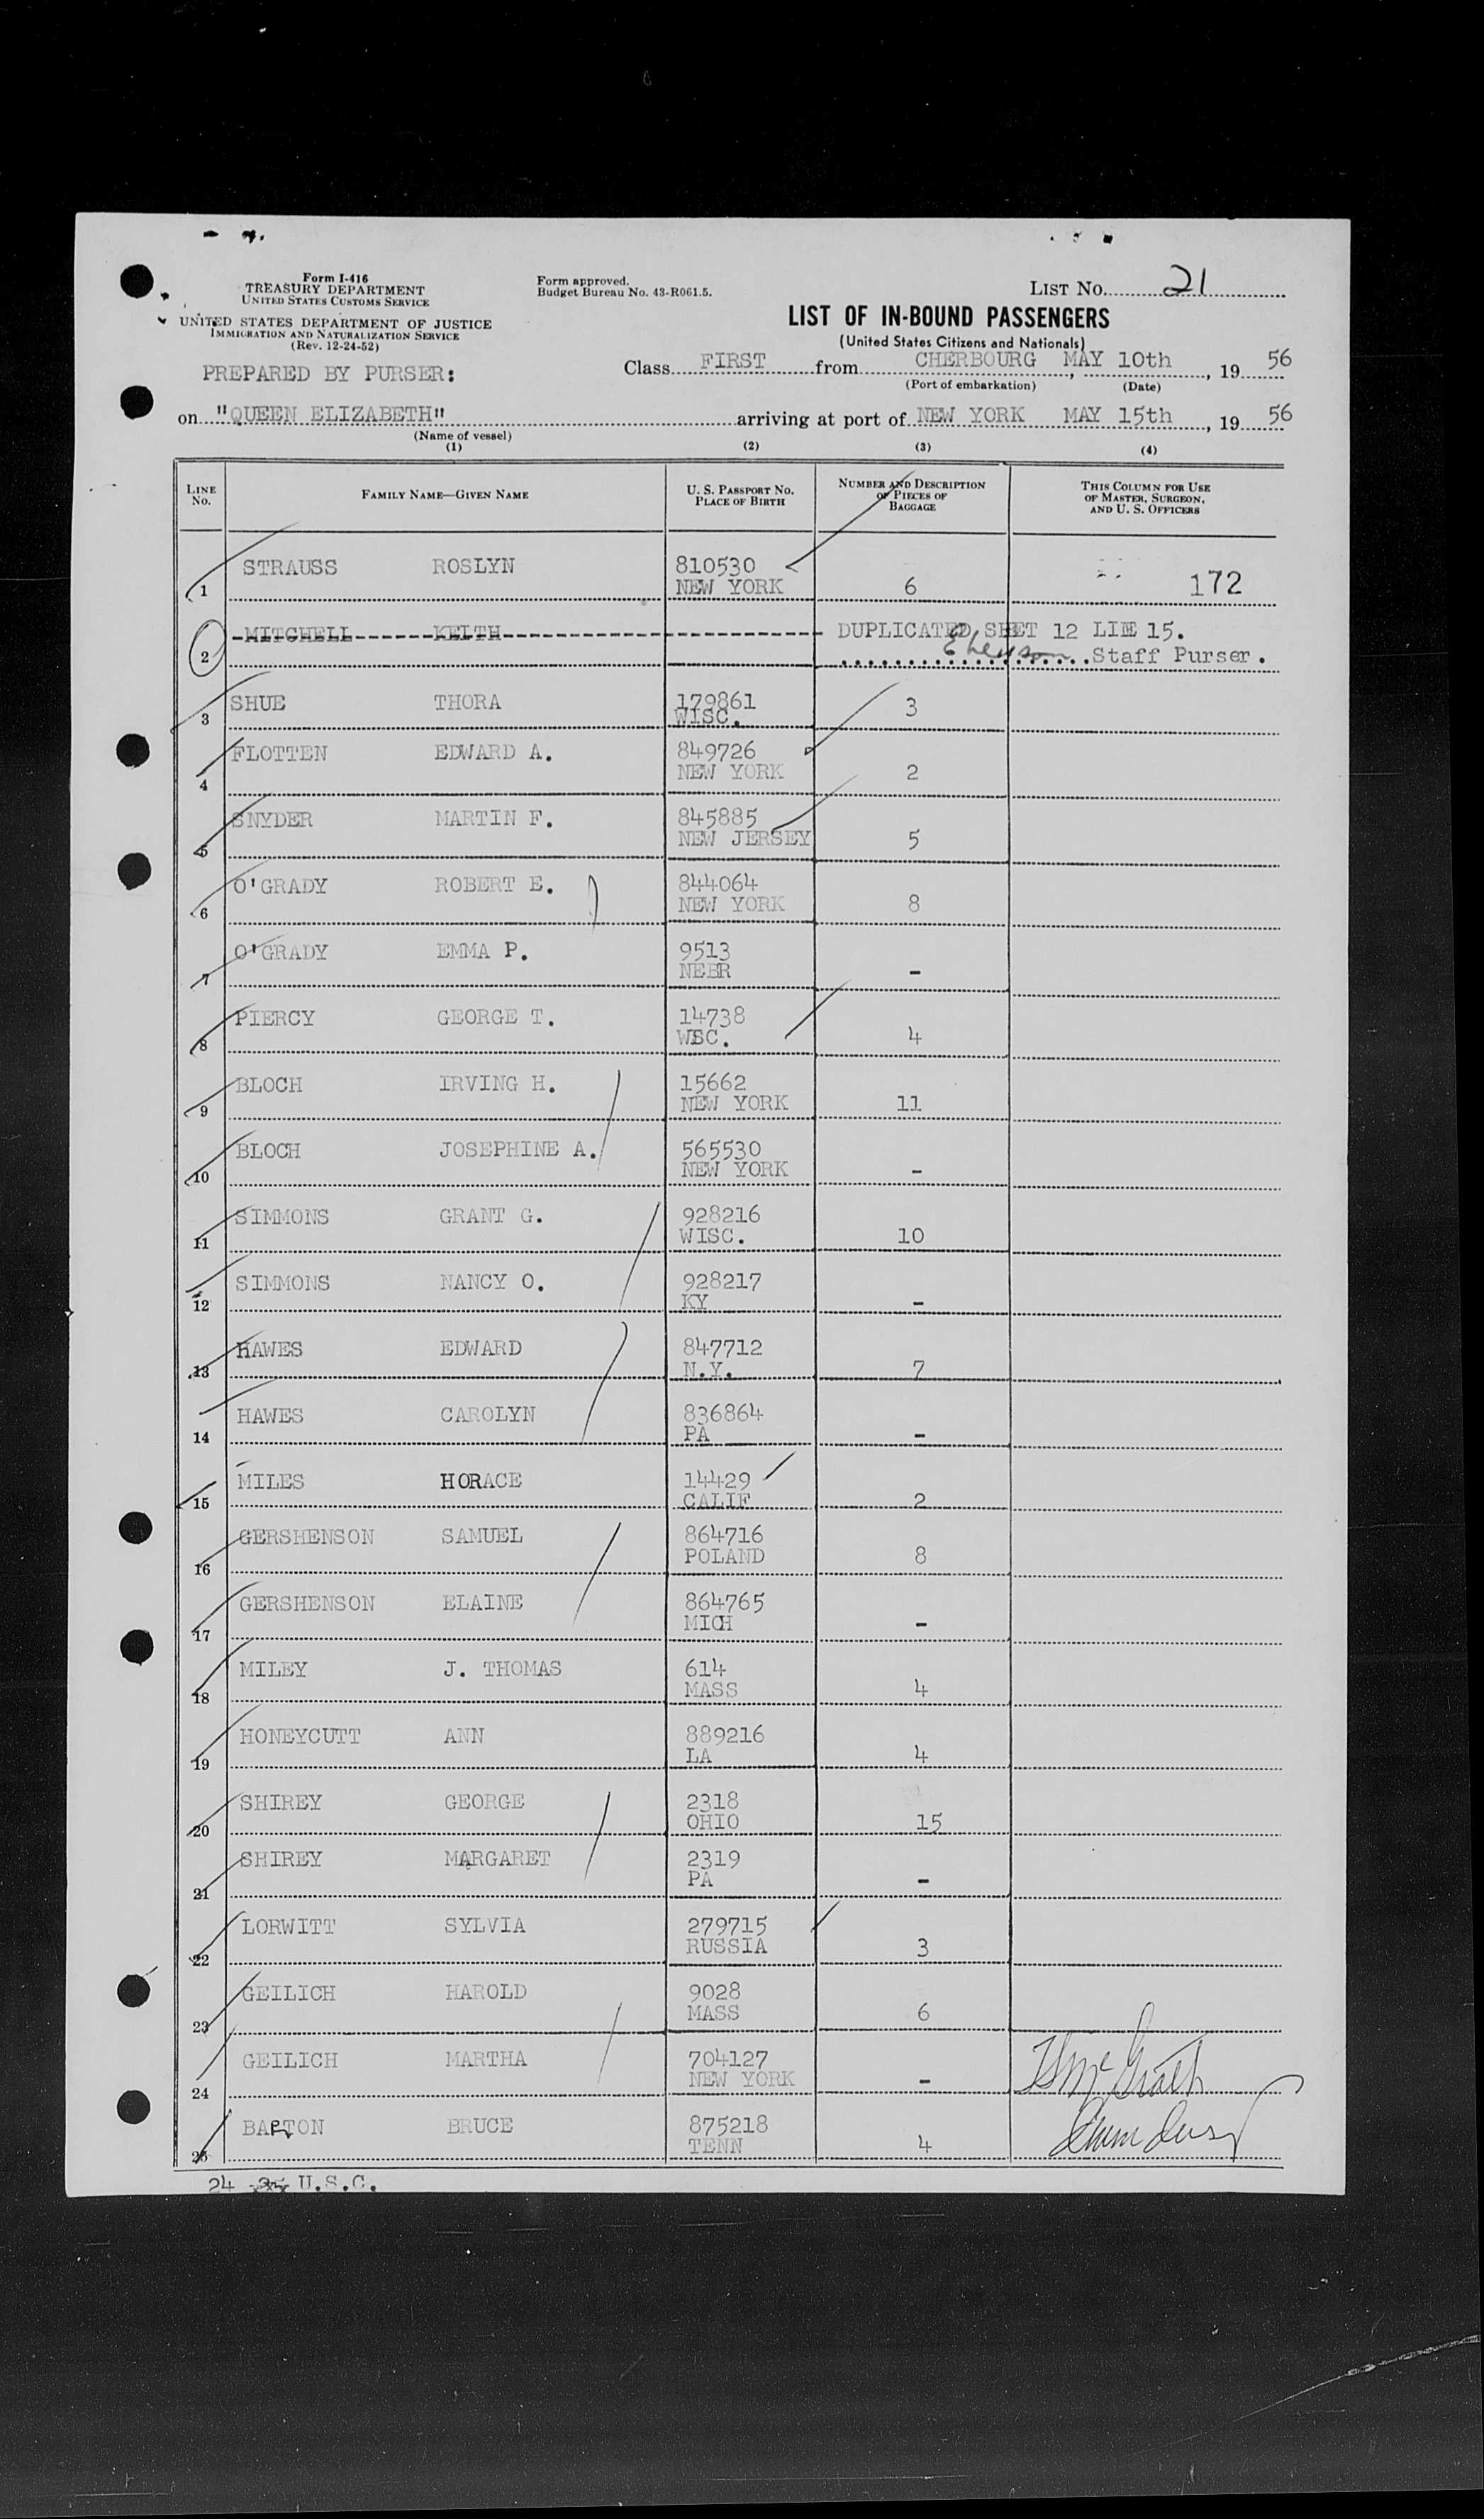 Form I-416
TREASURY DEPARTMENT
UNITED STATES CUSTOMS SERVICE
UNITED STATES DEPARTMENT OF JUSTICE
IMMIGRATION AND NATURALIZATION SERVICE
(Rev. 12-24-52)
Form approved.
Budget Bureau No. 43-R061.5.
LIST NO. 21
LIST OF IN-BOUND PASSENGERS
(United States Citizens and Nationals)
PREPARED BY PURSER:
Class FIRST from CHERBOURG MAY 10th, 19 56
(Port of embarkation) (Date)
on "QUEEN ELIZABETH" arriving at port of NEW YORK MAY 15th, 19 56
(Name of vessel)
(1) (2) (3) (4)
LINE NO. FAMILY NAME—GIVEN NAME U. S. PASSPORT NO. PLACE OF BIRTH NUMBER AND DESCRIPTION OF PIECES OF BAGGAGE THIS COLUMN FOR USE OF MASTER, SURGEON, AND U. S. OFFICERS
1 STRAUSS ROSLYN 810530 NEW YORK 6 172
2 MITCHELL KEITH DUPLICATED SHEET 12 LINE 15.
Staff Purser.
3 SHUE THORA 179861 WISC. 3
4 FLOTTEN EDWARD A. 849726 NEW YORK 2
5 SNYDER MARTIN F. 845885 NEW JERSEY 5
6 O'GRADY ROBERT E. 844064 NEW YORK 8
7 O'GRADY EMMA P. 9513 NEBR -
8 PIERCY GEORGE T. 14738 WISC. 4
9 BLOCH IRVING H. 15662 NEW YORK 11
10 BLOCH JOSEPHINE A. 565530 NEW YORK -
11 SIMMONS GRANT G. 928216 WISC. 10
12 SIMMONS NANCY O. 928217 KY -
13 HAWES EDWARD 847712 N.Y. 7
14 HAWES CAROLYN 836864 PA -
15 MILES HORACE 14429 CALIF 2
16 GERSHENSON SAMUEL 864716 POLAND 8
17 GERSHENSON ELAINE 864765 MICH -
18 MILEY J. THOMAS 614 MASS 4
19 HONEYCUTT ANN 889216 LA 4
20 SHIREY GEORGE 2318 OHIO 15
21 SHIREY MARGARET 2319 PA -
22 LORWITT SYLVIA 279715 RUSSIA 3
23 GEILICH HAROLD 9028 MASS 6
24 GEILICH MARTHA 704127 NEW YORK -
25 BARTON BRUCE 875218 TENN 4
24 25 U.S.C.